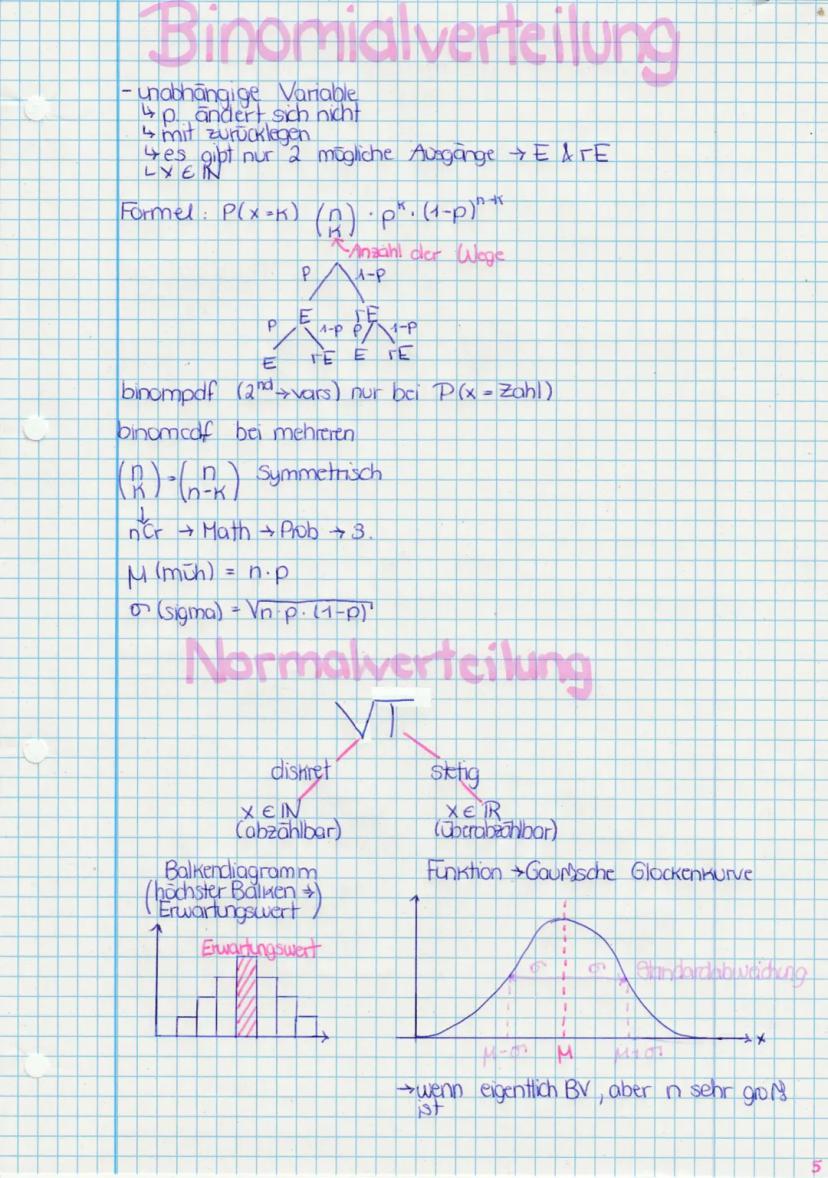 Binomialverteilung
- unabhängige Variable
↳ p ändert sich nicht
↳ mit zurücklegen
↳ es gibt nur 2 mögliche Ausgänge → E & ¬E
↳ X ∈ ℕ
Formel: P(x=k) (n k) · p^k · (1-p)^n-k
Anzahl der Wege
p 1-p
E ¬E
p 1-p p 1-p
E ¬E E ¬E
binompdf (2nd → vars) nur bei P(x = Zahl)
binomcdf bei mehreren
(n k) = (n n-k) Symmetrisch
↓
nCr → Math → Prob → 3.
μ (müh) = n·p
σ (sigma) = √n·p·(1-p)
Normalverteilung
VT
diskret stetig
X ∈ ℕ X ∈ ℝ
(abzählbar) (überabzählbar)
Balkendiagramm Funktion → Gaußsche Glockenkurve
(höchster Balken →
Erwartungswert)
Erwartungswert
σ σ Standardabweichung
x
μ-σ μ μ+σ
→ wenn eigentlich BV, aber n sehr groß
ist
5